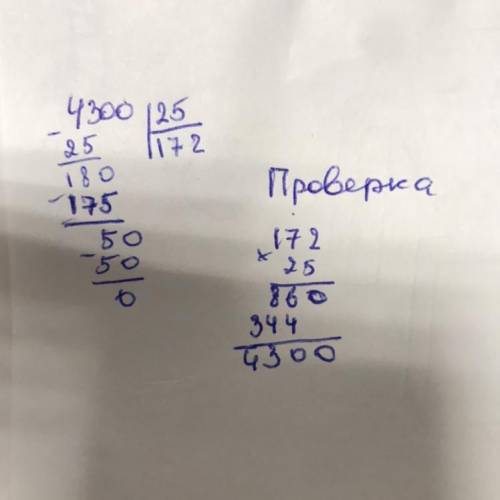 4300 | 25
- 25 | 172
180
- 175
50
- 50
0
Проверка
172
× 25
860
344
4300